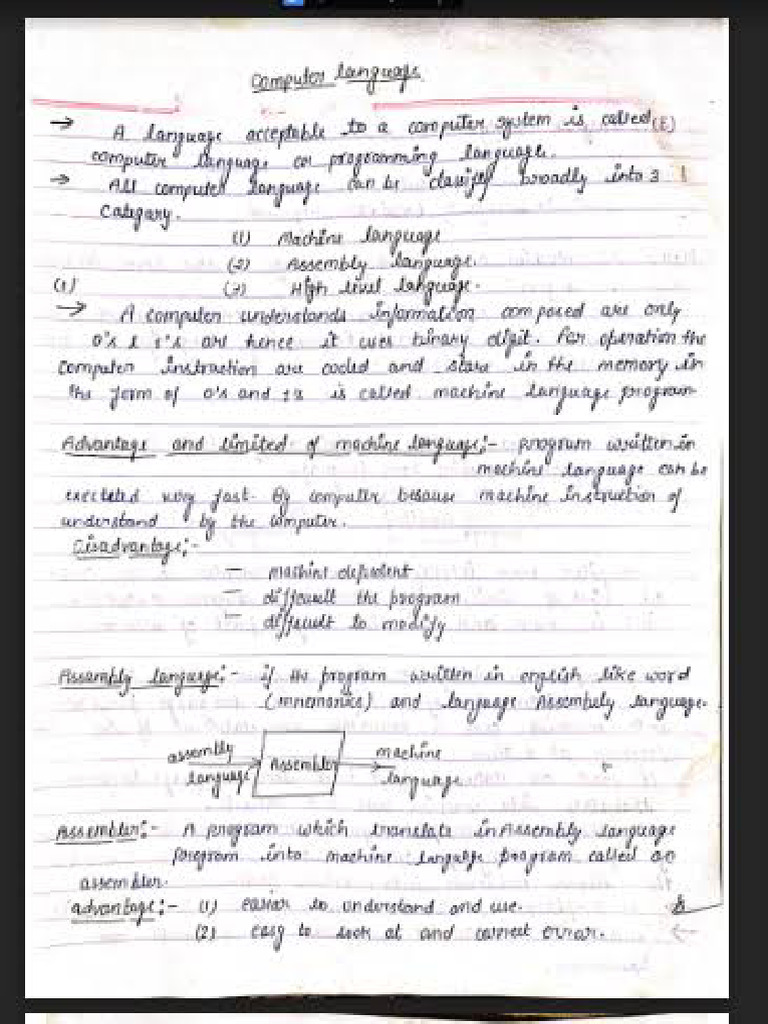 Computer language
→ A language acceptable to a computer system is called (E)
computer language or programming language.
→ All computer language can be classify broadly into 3
Category.
(1) Machine language
(2) Assembly language.
(1) (3) High level language.
→ A computer understands information composed are only
0's & 1's are hence it uses binary digit. For operation the
computer instruction are coded and store in the memory in
the form of 0's and 1s is called machine language program
Advantage and limited of machine language:- program written in
machine language can be
exected very fast. By computer because machine instruction of
understand by the computer.
Disadvantage:-
— machine dependent
— difficult the program
— difficult to modify
Assembly language:- if the program written in english like word
(mnemonics) and language Assembely language.
assembly language → Assembler → machine language
Assembler:- A program which translate in Assembly language
program into machine language program called an
assembler.
advantage:- (1) easier to understand and use.
(2) easy to look at and correct error.